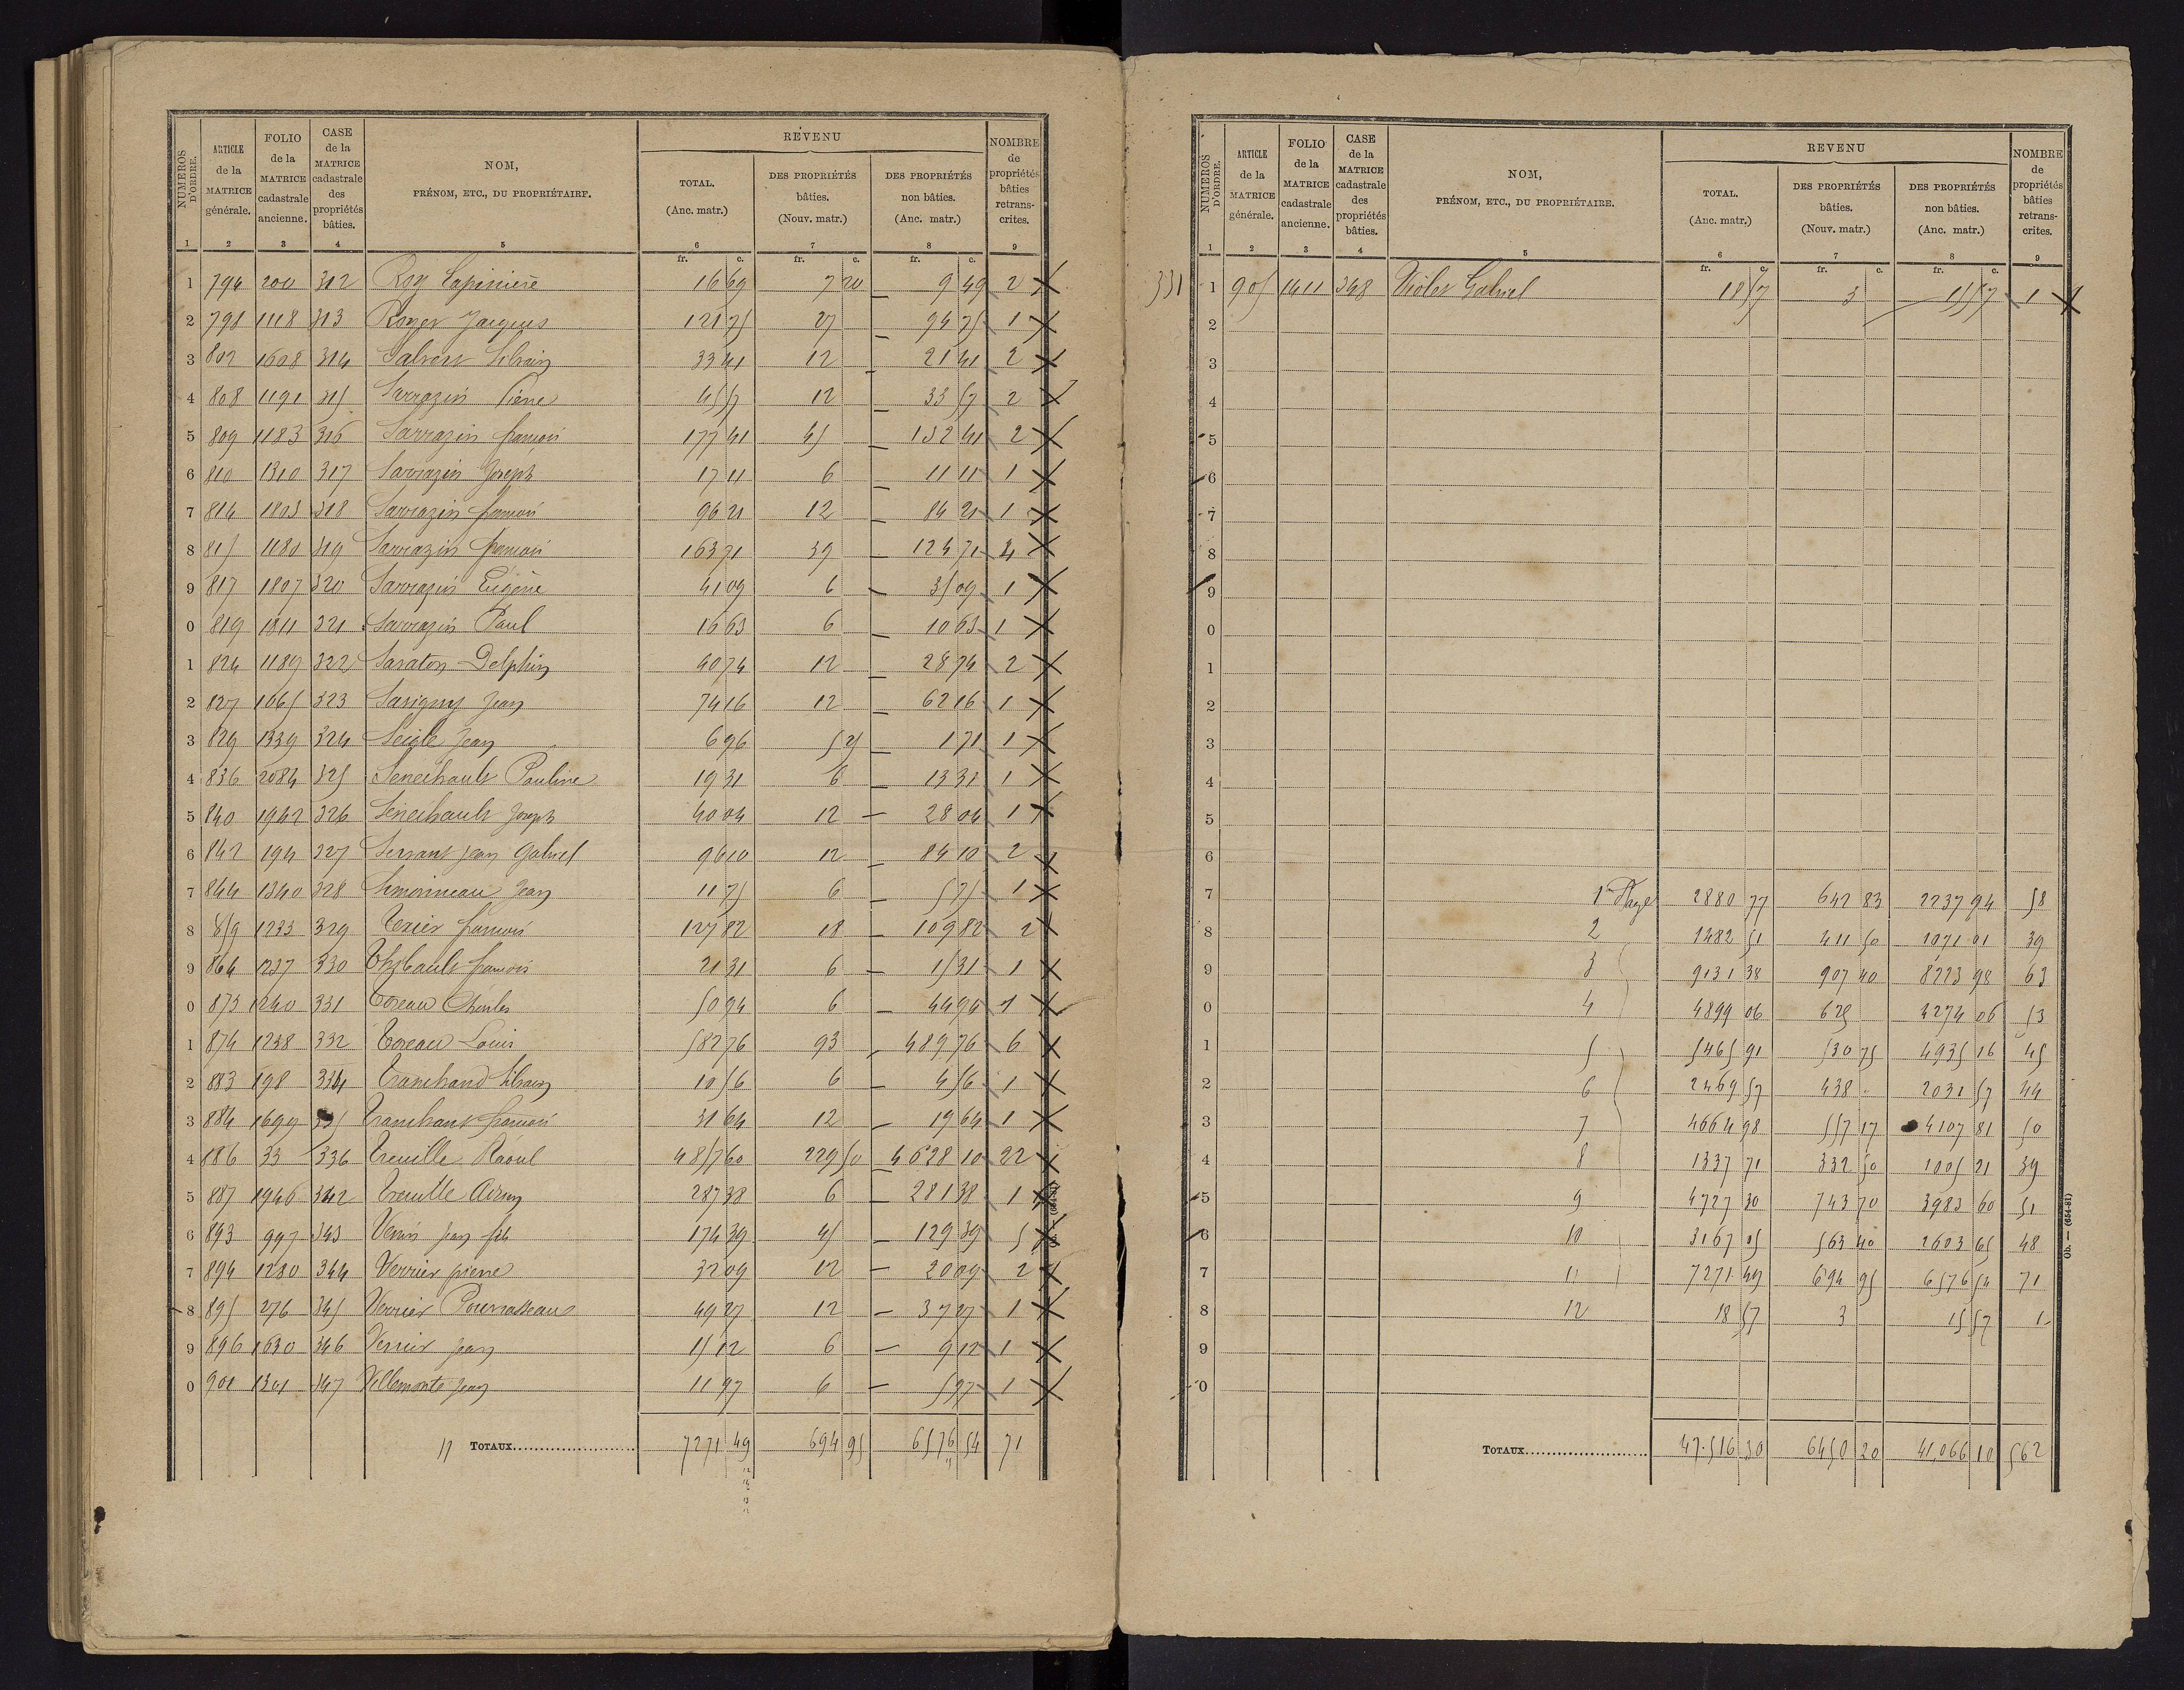 NUMÉROS D'ORDRE. ARTICLE de la MATRICE générale. FOLIO de la MATRICE cadastrale ancienne. CASE de la MATRICE cadastrale des propriétés bâties. NOM, PRÉNOM, ETC., DU PROPRIÉTAIRE. REVENU TOTAL. (Anc. matr.) DES PROPRIÉTÉS bâties. (Nouv. matr.) DES PROPRIÉTÉS non bâties. (Anc. matr.) NOMBRE de propriétés bâties retranscrites.
1 2 3 4 5 6 7 8 9
fr. c. fr. c. fr. c.
1 794 200 312 Roy Lapinière 16 69 7 20 9 49 2 X
2 798 1118 313 Royer Jacques 121 75 27 94 75 1 X
3 802 1608 314 Salvert Silvain 33 41 12 21 41 2 X
4 808 1191 315 Sarrazin Pierre 45 57 12 33 57 2 X
5 809 1183 316 Sarrazin françois 177 41 45 132 41 2 X
6 810 1310 317 Sarrazin Joseph 17 11 6 11 11 1 X
7 814 1803 318 Sarrazin françois 96 21 12 84 21 1 X
8 815 1180 319 Sarrazin françois 163 71 39 124 71 4 X
9 817 1807 320 Sarrazin Eugène 41 09 6 35 09 1 X
0 819 1811 321 Sarrazin Paul 16 63 6 10 63 1 X
1 824 1189 322 Savaton Delphin 40 74 12 28 74 2 X
2 827 1065 323 Savigny Jean 74 16 12 62 16 1 X
3 829 1339 324 Seigle Jean 6 96 5 25 1 71 1 X
4 836 2084 325 Senechault Pauline 19 31 6 13 31 1 X
5 840 1942 326 Senechault Joseph 40 04 12 28 04 1 X
6 842 194 327 Servant Jean Gabriel 96 10 12 84 10 2 X
7 844 1340 328 Simonneau Jean 11 75 6 5 75 1 X
8 859 1233 329 Texier françois 127 82 18 109 82 2 X
9 864 1237 330 Thibault françois 21 31 6 15 31 1 X
0 873 1240 331 Toreau Charles 50 94 6 44 94 1 X
1 874 1238 332 Toreau Louis 582 76 93 489 76 6 X
2 883 198 334 Tranchand Silvain 10 56 6 4 56 1 X
3 884 1699 335 Tranchant françois 31 64 12 19 64 1 X
4 886 33 336 Treuille Raoul 4857 60 229 50 4628 10 22 X
5 887 1946 342 Treuille 287 38 6 281 38 1 X
6 893 997 343 Jean fils 174 39 45 129 39 5 X
7 894 1280 344 Verrier pierre 32 09 12 20 09 2 X
8 895 276 345 Verrier Pournasseau 49 27 12 37 27 1 X
9 896 1630 346 Verrier Jean 15 12 6 9 12 1 X
0 901 1301 347 Villemonte Jean 11 97 6 5 97 1 X
11 TOTAUX 7271 49 694 95 6576 54 71
Ob. — (654-81)
NUMÉROS D'ORDRE. ARTICLE de la MATRICE générale. FOLIO de la MATRICE cadastrale ancienne. CASE de la MATRICE cadastrale des propriétés bâties. NOM, PRÉNOM, ETC., DU PROPRIÉTAIRE. REVENU TOTAL. (Anc. matr.) DES PROPRIÉTÉS bâties. (Nouv. matr.) DES PROPRIÉTÉS non bâties. (Anc. matr.) NOMBRE de propriétés bâties retranscrites.
1 2 3 4 5 6 7 8 9
fr. c. fr. c. fr. c.
331 1 905 1411 348 Violet Gabriel 18 57 3 15 57 1 X
2
3
4
5
6
7
8
9
0
1
2
3
4
5
6
7 1 Page 2880 77 642 83 2237 94 58
8 2 1482 51 411 50 1071 01 39
9 3 9131 38 907 40 8223 98 63
0 4 4899 06 625 4274 06 53
1 5 5465 91 530 75 4935 16 45
2 6 2469 57 438 " 2031 57 44
3 7 4664 98 557 17 4107 81 50
4 8 1337 71 332 50 1005 21 39
5 9 4727 30 743 70 3983 60 51
6 10 3167 05 563 40 2603 65 48
7 11 7271 49 694 95 6576 54 71
8 12 18 57 3 15 57 1
9
0
TOTAUX 47.516 30 6450 20 41,066 10 562
Ob. — (654-81)